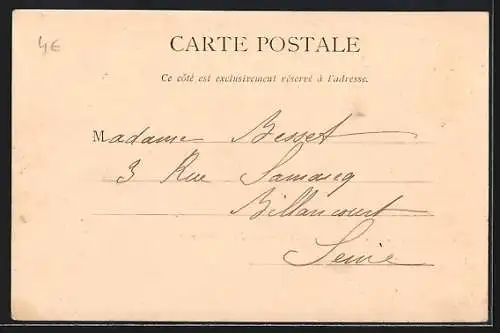 4€
CARTE POSTALE
Ce côté est exclusivement réservé à l'adresse.
Madame Besset
3 Rue Samarcq
Billancourt
Seine